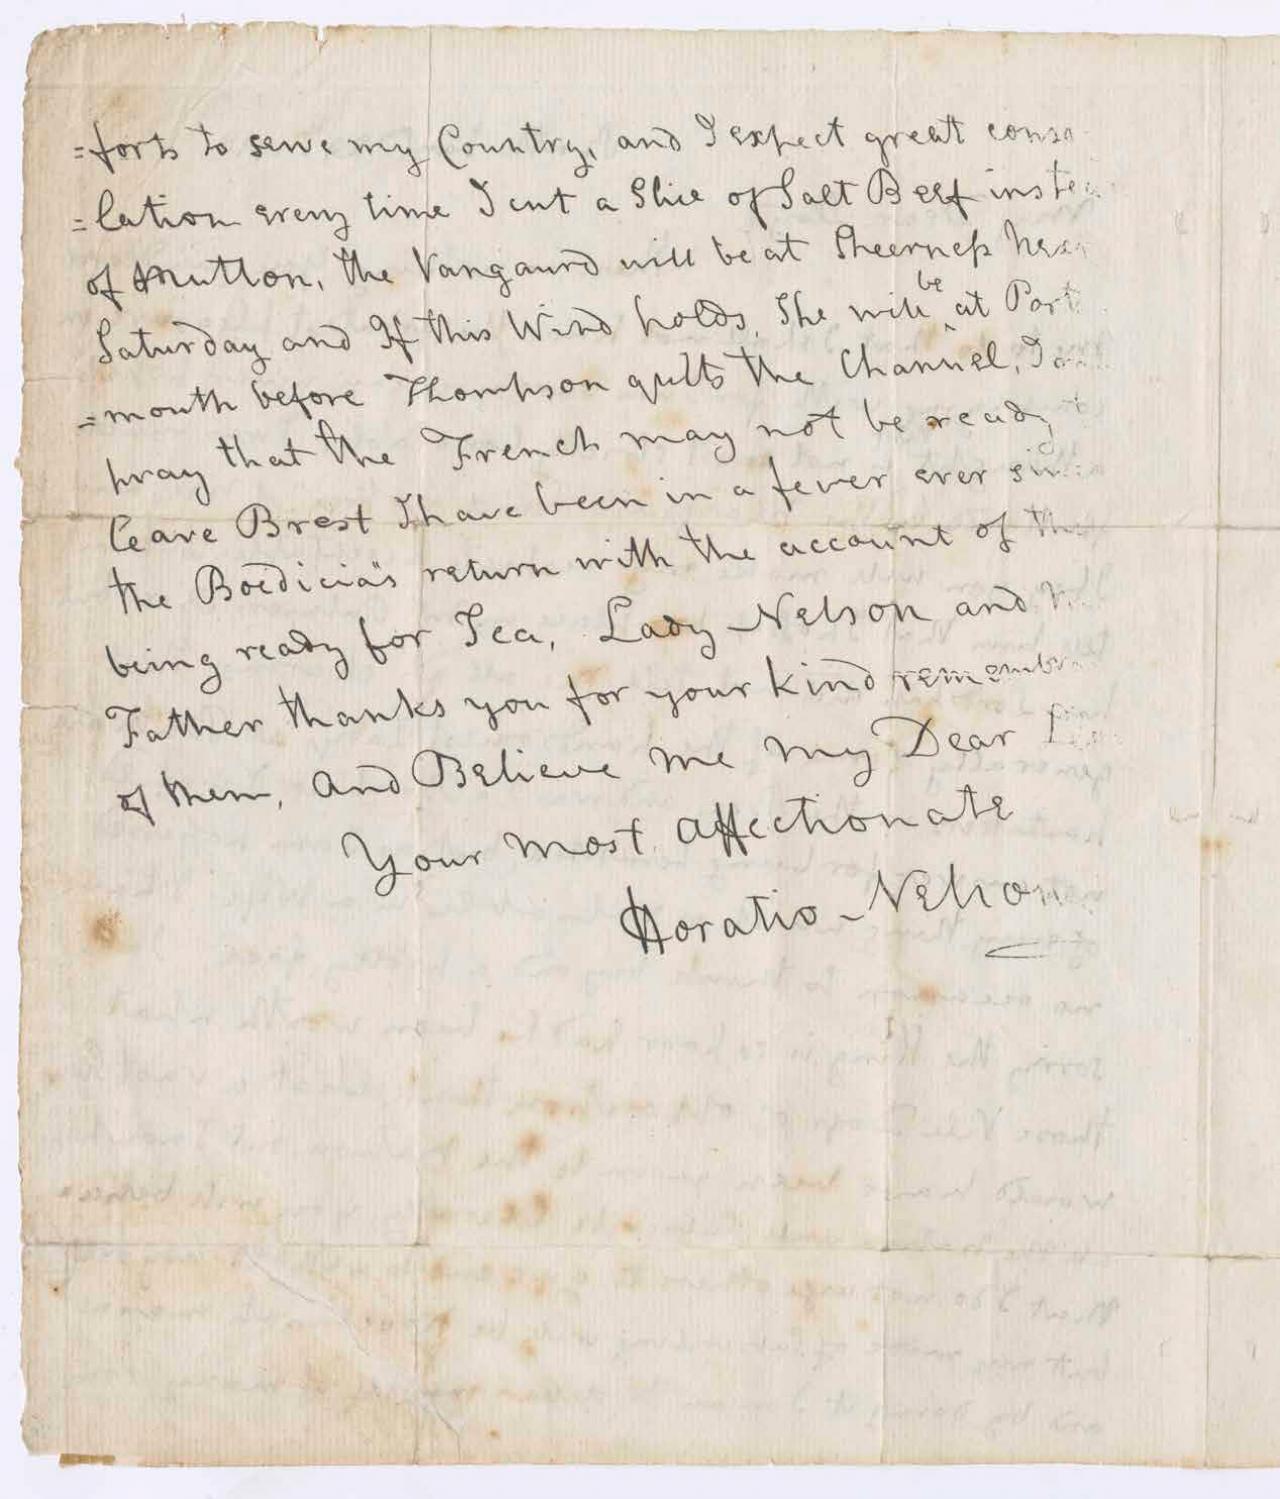 =forts to serve my Country, and I expect great conso
=lation every time I cut a Slice of Salt Beef instea
of Mutton, the Vangaurd will be at Sheerness Next
Saturday and If this Wind holds, She will be at Port
=mouth before Thompson quits the Channel, I
pray that the French may not be ready
leave Brest I have been in a fever ever since
the Boedicia's return with the account of
being ready for Sea, Lady Nelson and
Father thanks you for your kind remembr
of them, and Believe me my Dear
Your most affectionate
Horatio Nelson